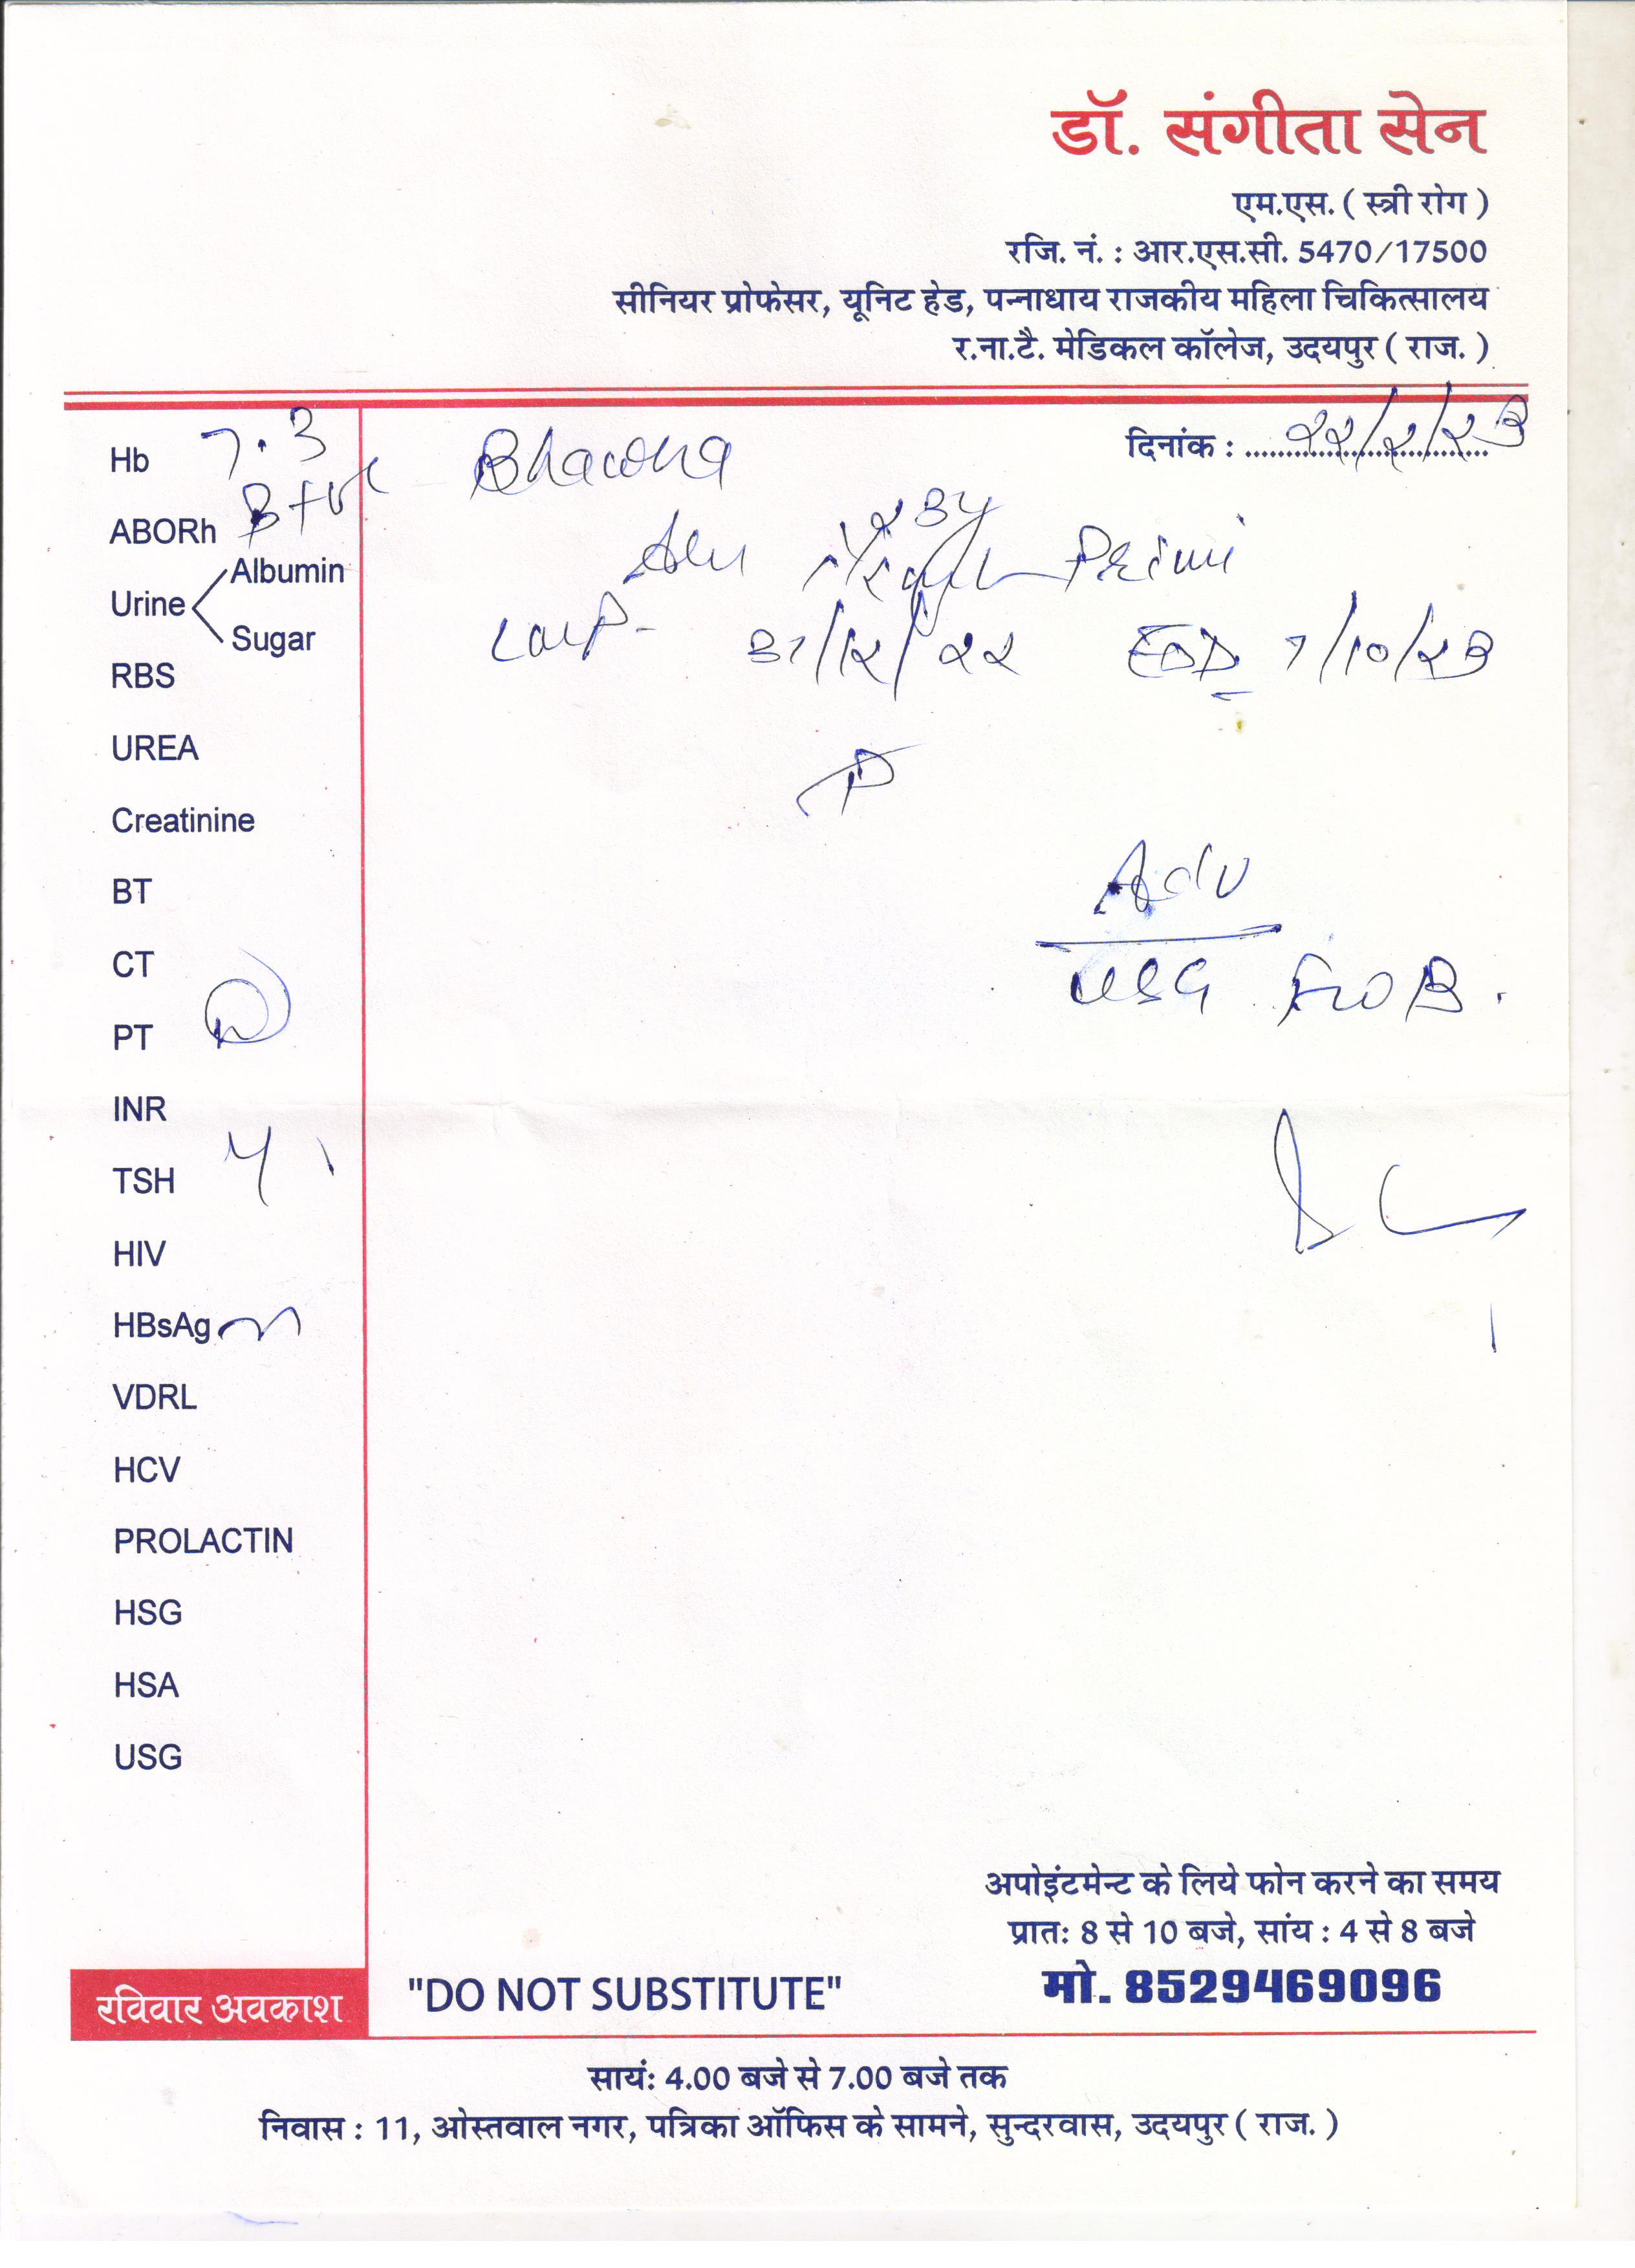 डॉ. संगीता सेन
एम.एस. ( स्त्री रोग )
रजि. नं. : आर.एस.सी. 5470/17500
सीनियर प्रोफेसर, यूनिट हेड, पन्नाधाय राजकीय महिला चिकित्सालय
र.ना.टै. मेडिकल कॉलेज, उदयपुर ( राज. )
दिनांक : २२/२/२३
Bhawna
Primi
LMP- 31/12/22 EDD 7/10/23
Adv
USG
Hb 7.3
ABORh B+ve
Urine Albumin
Sugar
RBS
UREA
Creatinine
BT
CT
PT
INR
TSH
HIV
HBsAg
VDRL
HCV
PROLACTIN
HSG
HSA
USG
अपोइंटमेन्ट के लिये फोन करने का समय
प्रातः 8 से 10 बजे, सांय : 4 से 8 बजे
मो. 8529469096
रविवार अवकाश
"DO NOT SUBSTITUTE"
सायंः 4.00 बजे से 7.00 बजे तक
निवास : 11, ओस्तवाल नगर, पत्रिका ऑफिस के सामने, सुन्दरवास, उदयपुर ( राज. )